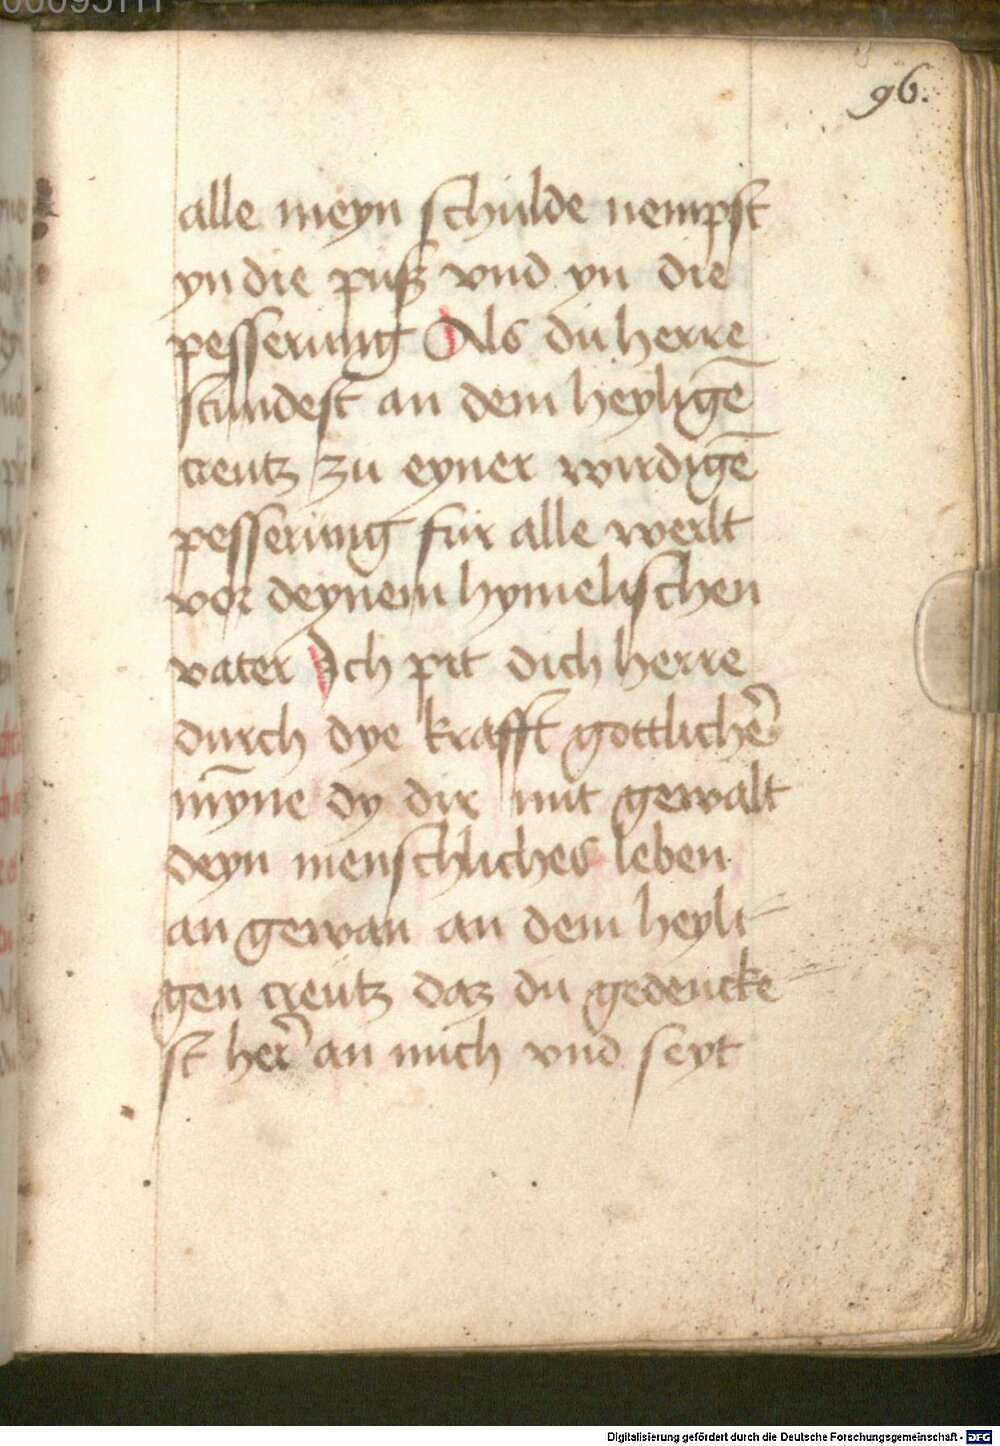 96.
alle meyn schulde nempst
yn die puſz vnd yn die
pesserung Als du herre
stundest an dem heyligē
creutz zu eyner wirdigē
pesserung fur alle werlt
vor deynem hymelischen
vater Ich pit dich herre
durch dye krafft gottlicher̄
mȳne dy dir mit gewalt
deyn menschliches leben
an gewan an dem heyli-
gen creutz daz du gedencke-
st her̄ an mich vnd seyt
Digitalisierung gefördert durch die Deutsche Forschungsgemeinschaft - DFG